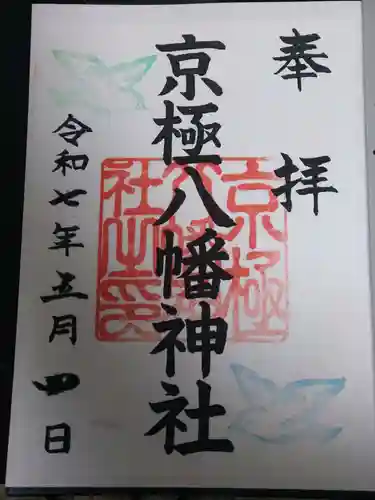 奉拝
京極八幡神社
令和七年五月四日
京極
八幡神
社之印